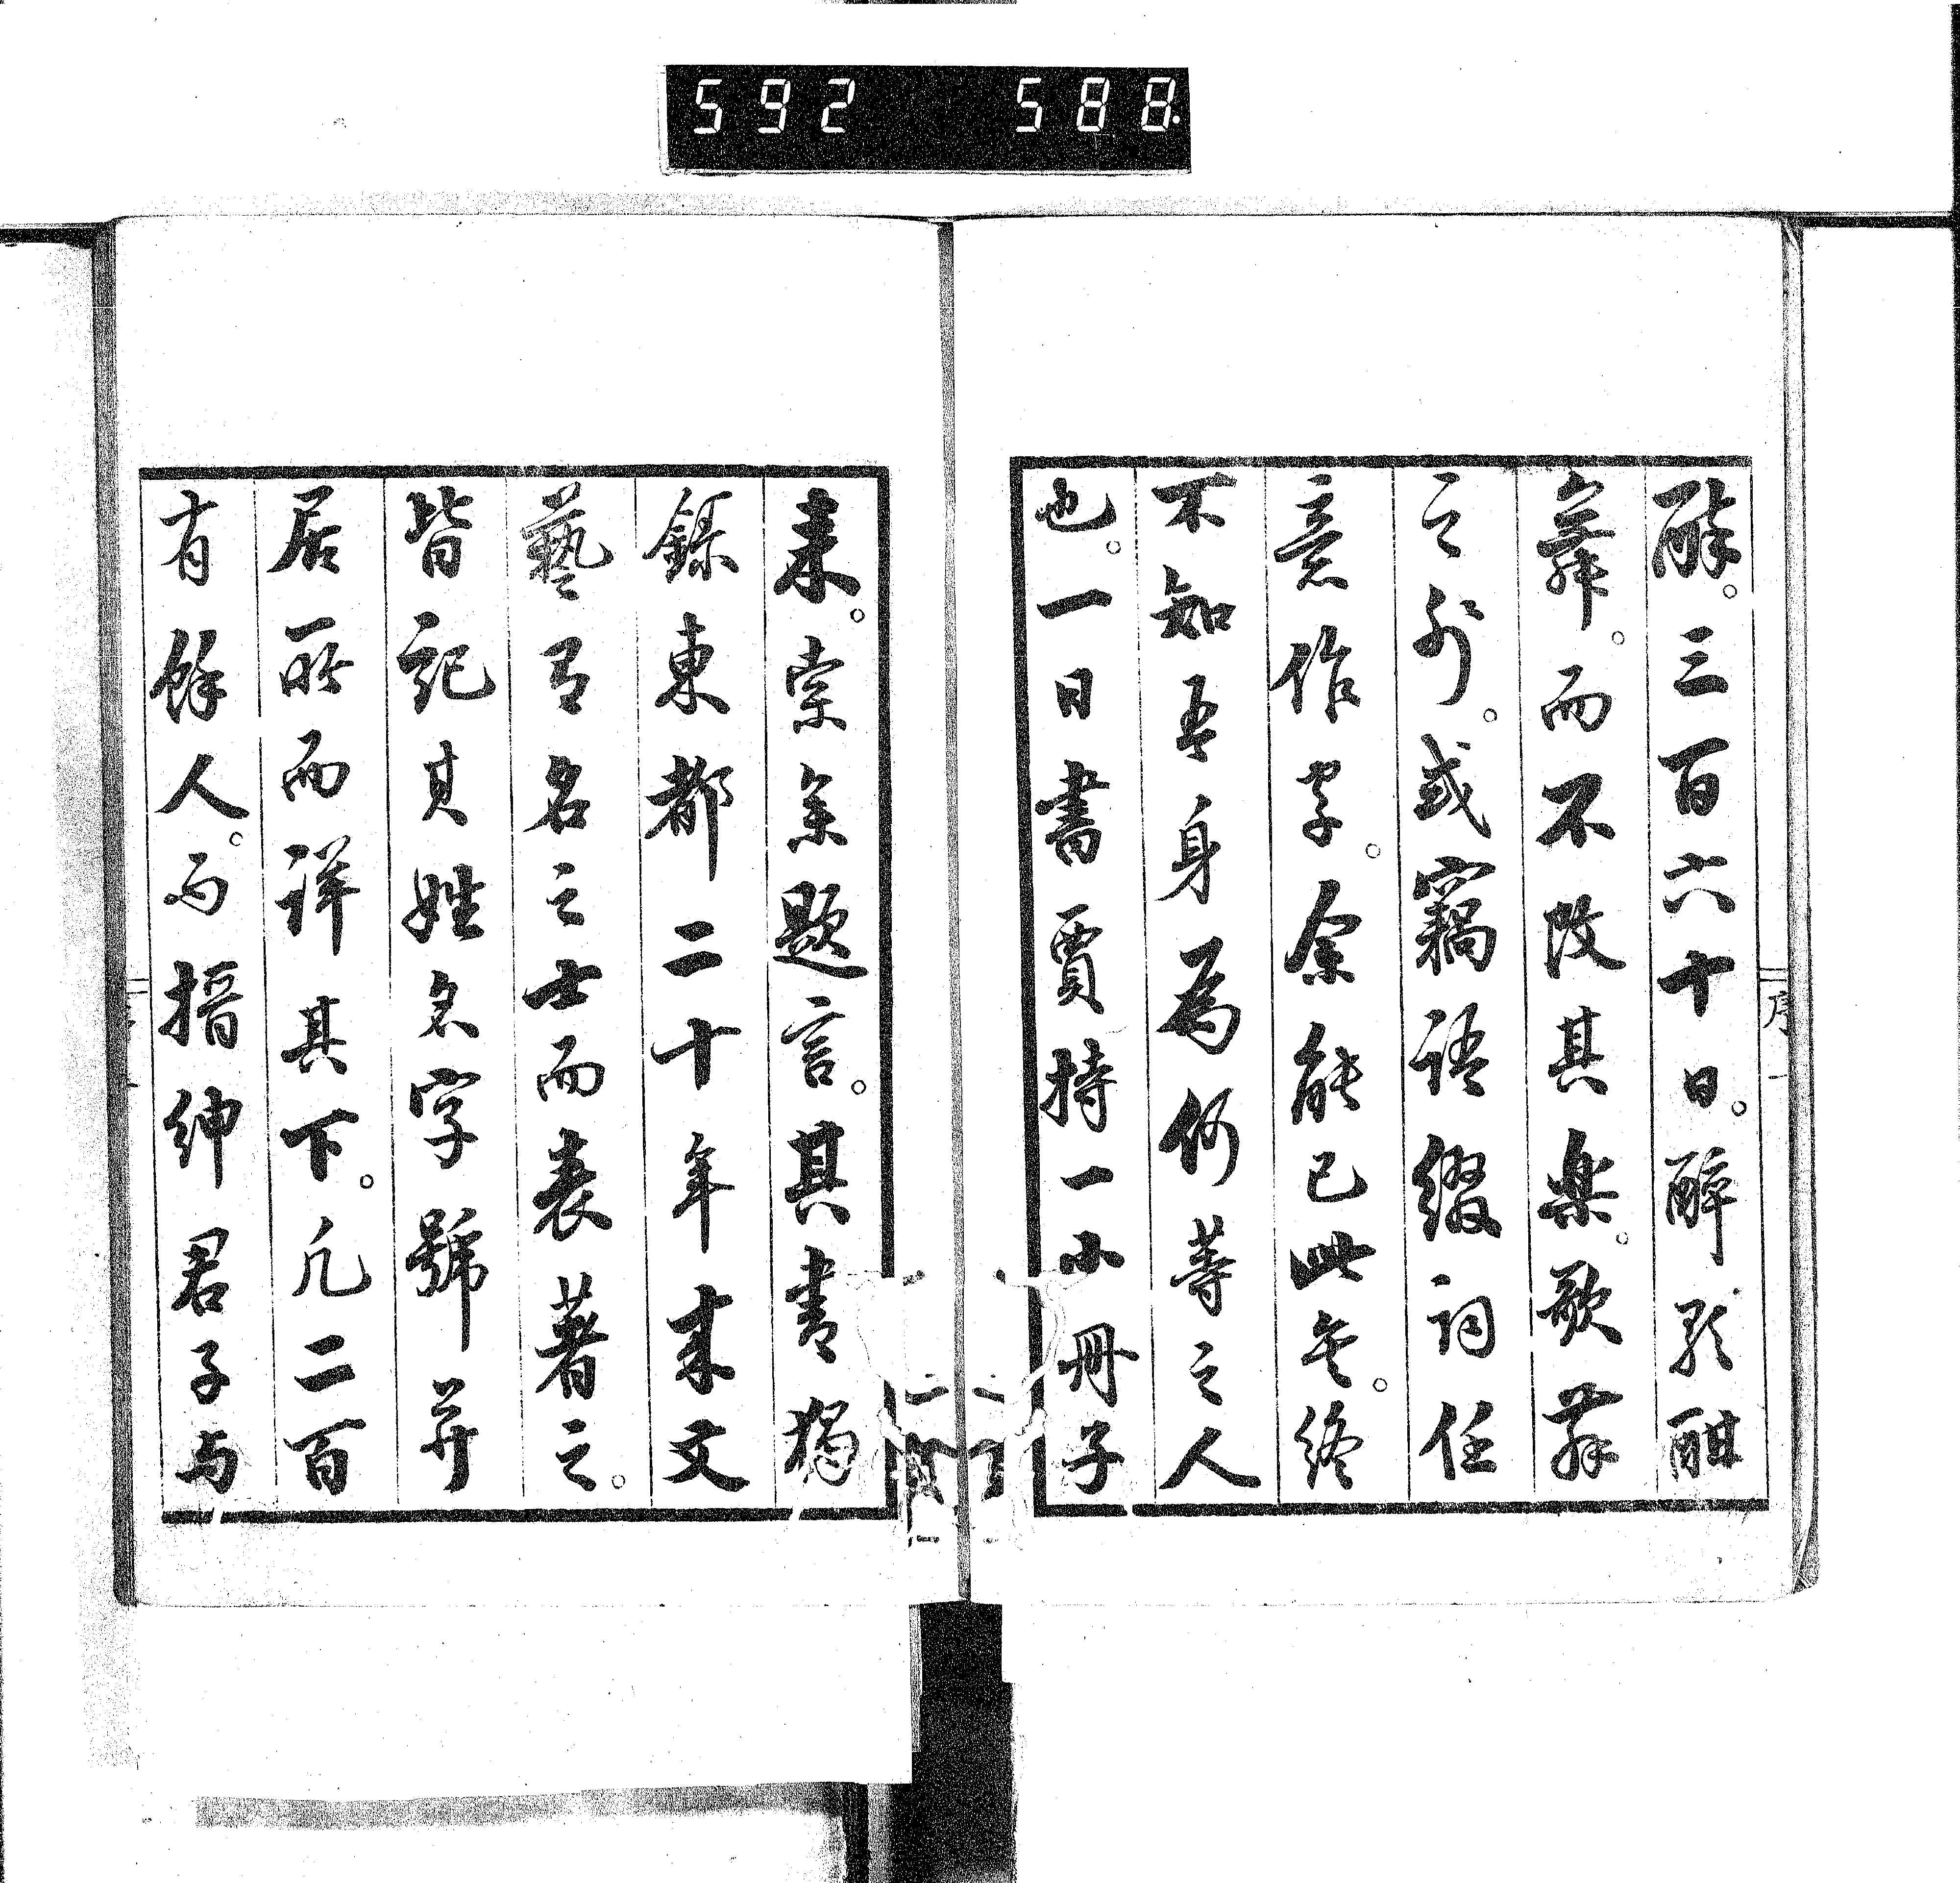 592 588.
酔。三百六十日。醉歌酣
舞。而不改其楽。歌舞
之外。或竊語綴詞任
意作字。余能已此矣。終
不知吾身爲何等之人
也。一日書賈持一小冊子
来。索余題言。其書獨
錄東都二十年来文
藝有名之士而表著之。
皆記其姓名字號并
居所而詳其下。凡二百
有餘人。而搢紳君子与
序